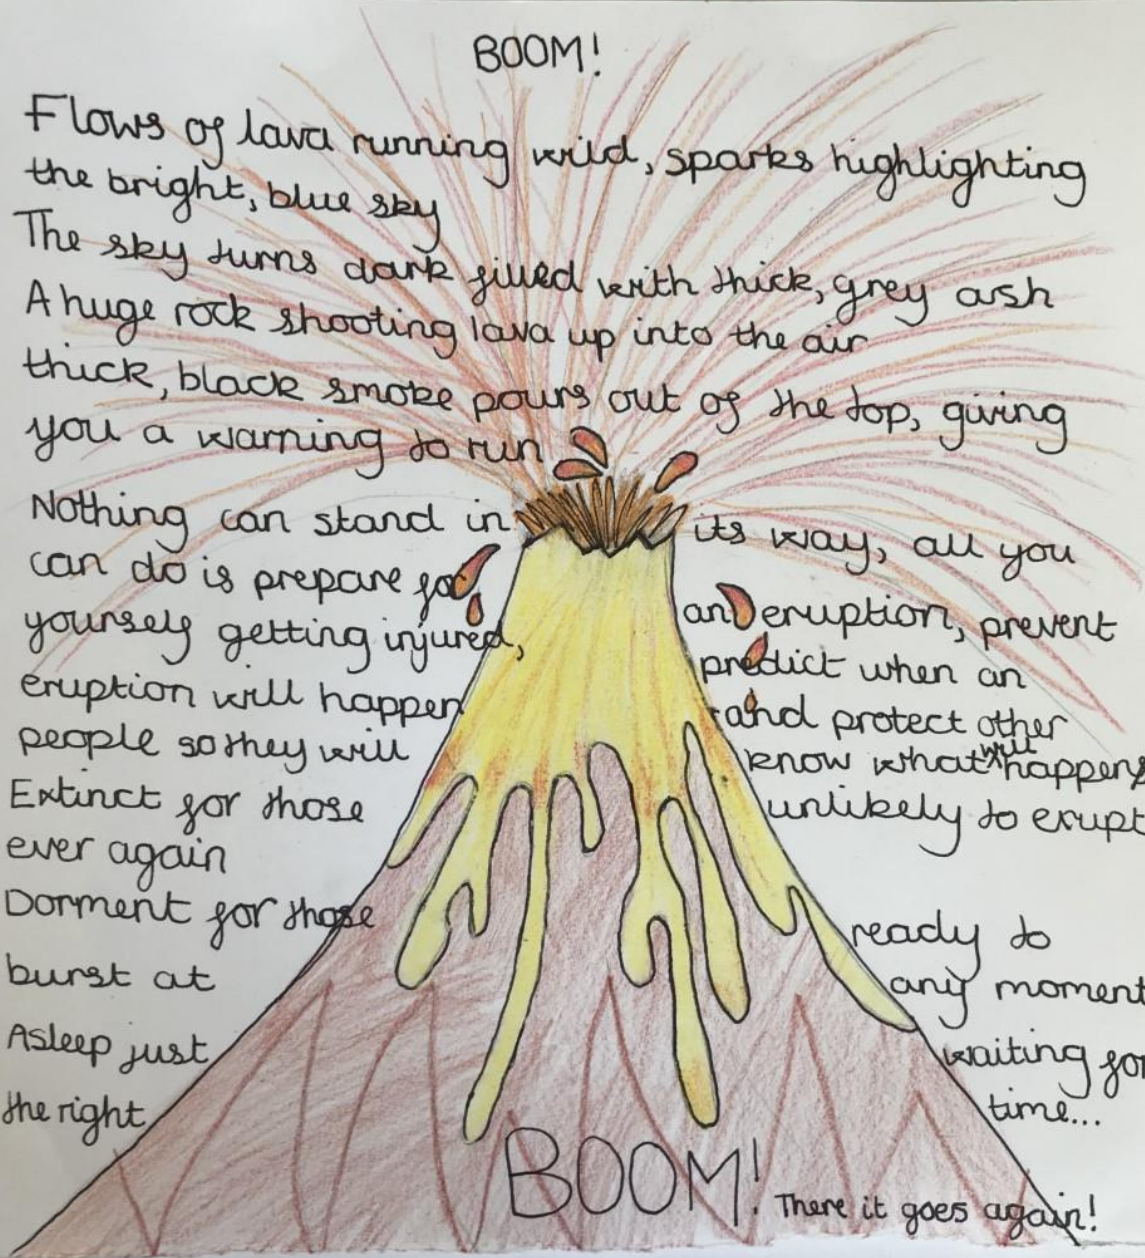 BOOM!
Flows of lava running wild, sparks highlighting
the bright, blue sky
The sky turns dark filled with thick, grey ash
A huge rock shooting lava up into the air
thick, black smoke pours out of the top, giving
you a warning to run
Nothing can stand in its way, all you
can do is prepare for an eruption, prevent
yourself getting injured, predict when an
eruption will happen and protect other
people so they will know what will happens
Extinct for those unlikely to erupt
ever again
Dorment for those ready to
burst at any moment
Asleep just waiting for
the right time...
BOOM! There it goes again!